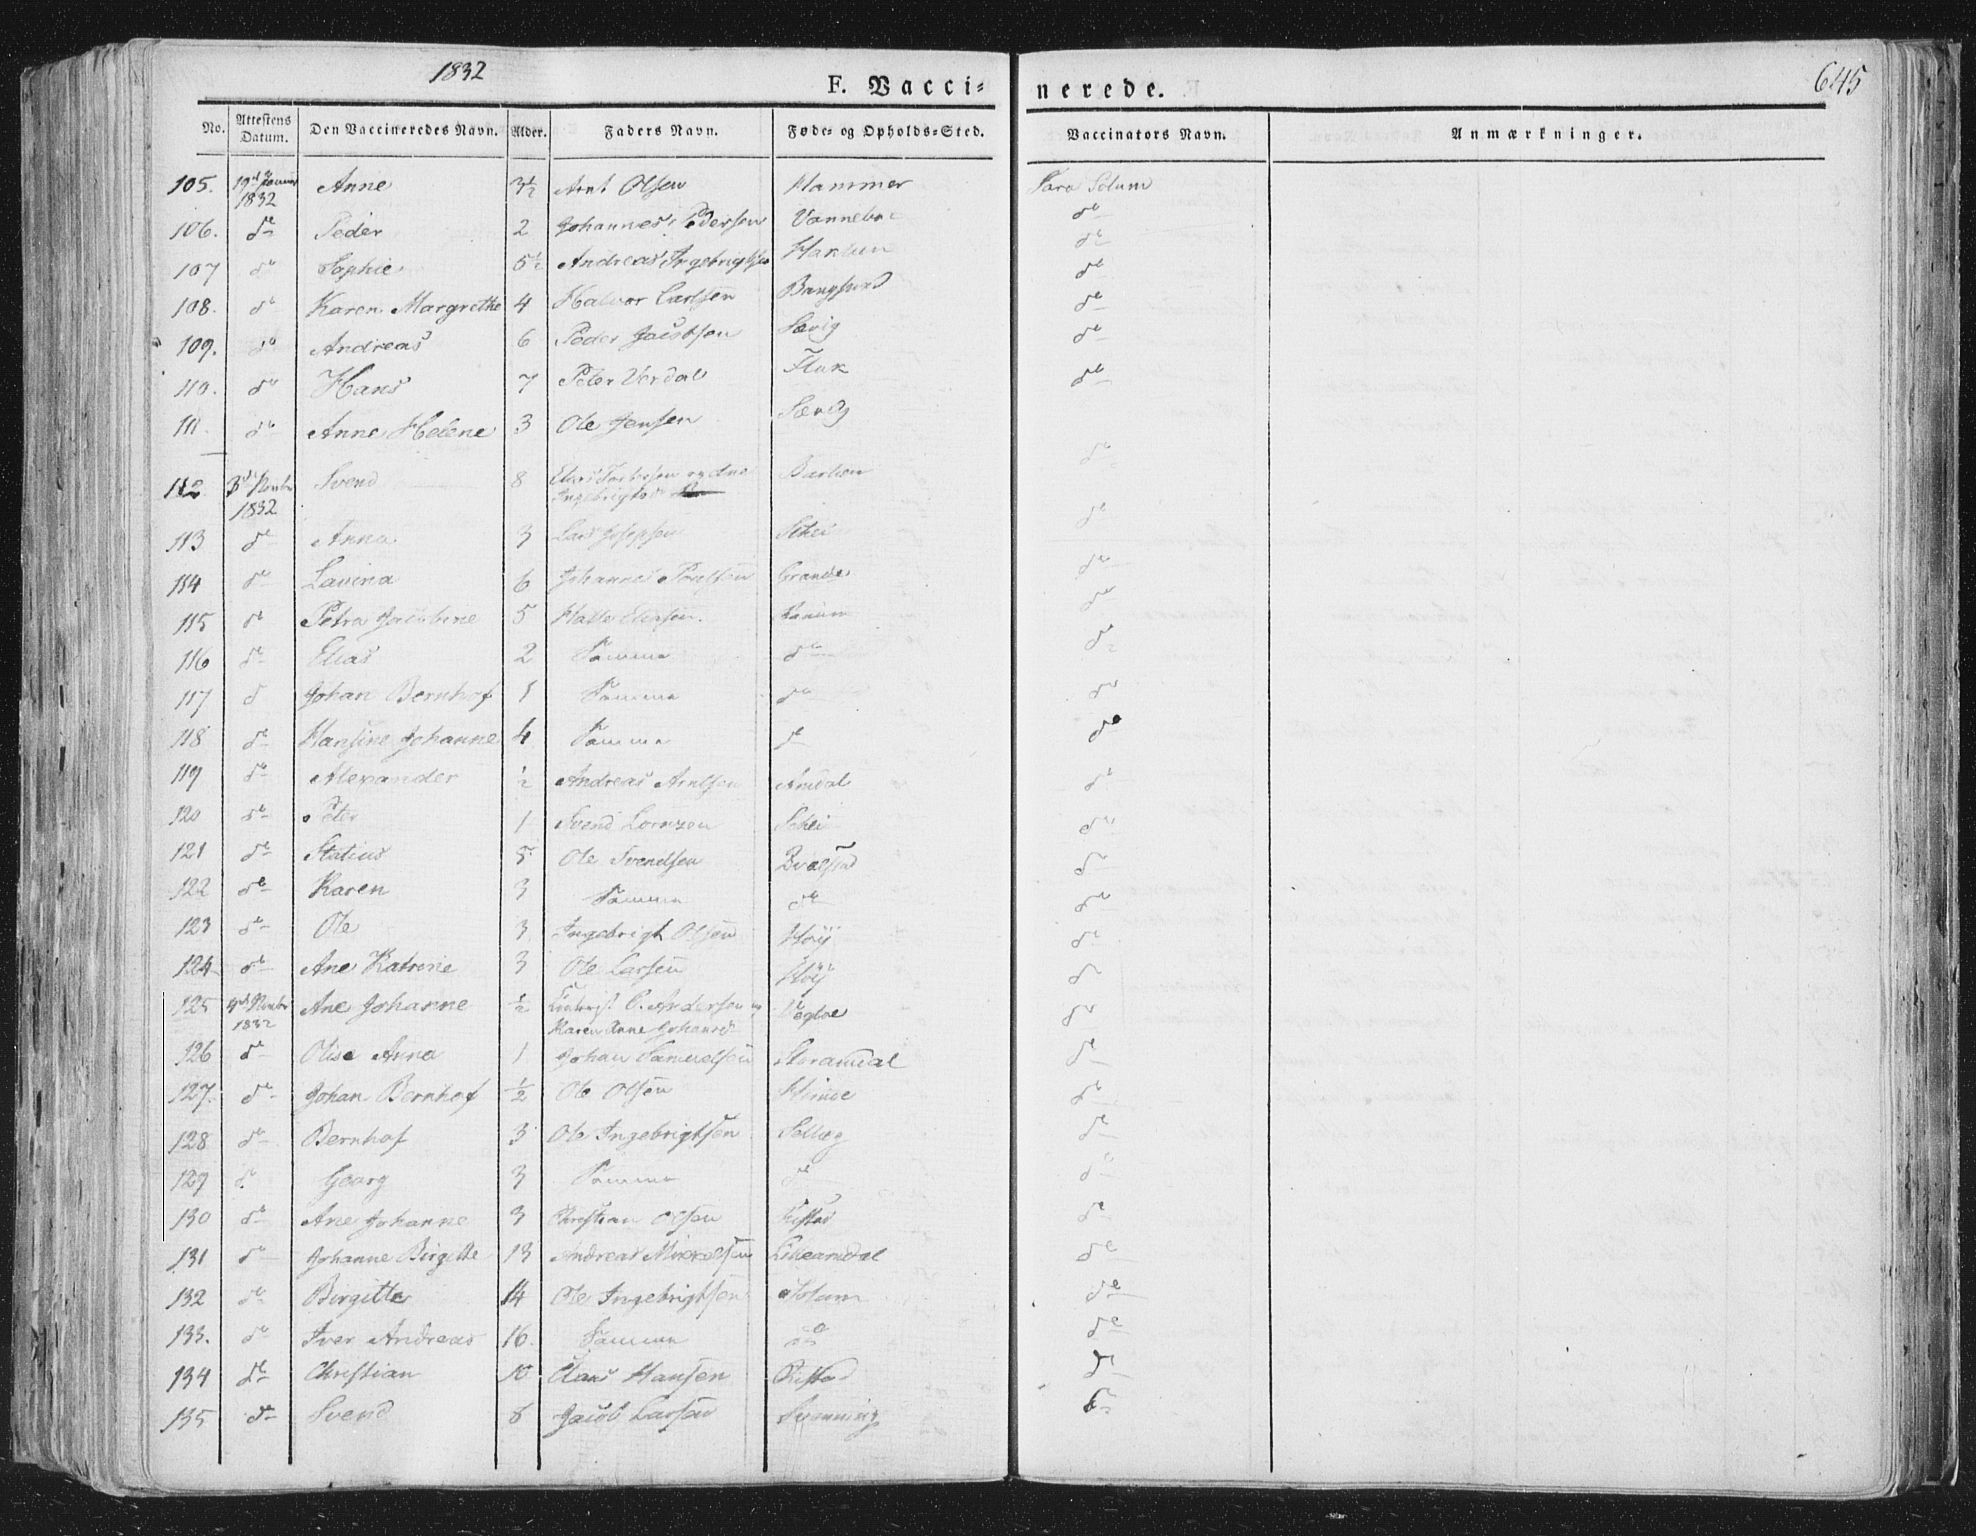 1832
F. Vacci-
nerede.
645
No. Attestens Datum. Den Vaccineredes Navn. Alder. Faders Navn. Føde- og Opholds-Sted. Vaccinators Navn. Anmærkninger.
105. 19d 1832 Anne 3½ Arnt Olsen Hammer Solum
106. de Peder 2 Johannes Pedersen de
107 de Sophie 5½ Andreas Ingebrigtsen de
108. de Karen Margrethe 4 Halvor Carlsen de
109. de Andreas 6 Peder Jacobsen Sævig de
110. de Hans 7 Peter Verdal Fluk de
111. de Anne Helene 3 Ole Jensen Sævig de
112 3d Novbr 1832 Svend 8 Ingebrigtsd de
113 de Anna 3 Lars Josephsen Schei de
114 de Lavina 6 Johannes Poulsen Grande de
115 de Petra Jacobine 5 Eliasen Ranum de
116 de Elias 2 Samme de de
117 d Johan Bernhof 1 Samme de de
118 de Hansine Johanne 4 Samme de de
119 de Alexander ½ Andreas Arntsen Amdal de
120 de Peter 1 Svend Lornzen Schei de
121 de Statius 5 Ole Svendsen de
122 de Karen 3 Samme de de
123 de Ole 3 Ingebrigt Olsen Høÿ de
124 de Ane Katrine 3 Ole Larsen Høÿ de
125 4d Novbr 1832 Ane Johanne ½ Andersen og Karen Anne de
126 de Olise Anna 1 Johan Samuelsen Storamdal de
127. de Johan Bernhof ½ Ole Olsen de
128 de Bernhof 3 Ole Ingebrigtsen Selleg de
129 d. Georg 3 Samme de de
130 de Ane Johanne 3 Christian Olsen de
131 de Johanne Birgitte 13 Andreas Mikkelsen Lilleamdal de
132 de Birgitte 14 Ole Ingebrigtsen Solum de
133. de Iver Andreas 16. Samme de de
134 de Christian 10 Claus Hansen Ristad de
135 de Svend 8 Jacob Larsen Svenning de